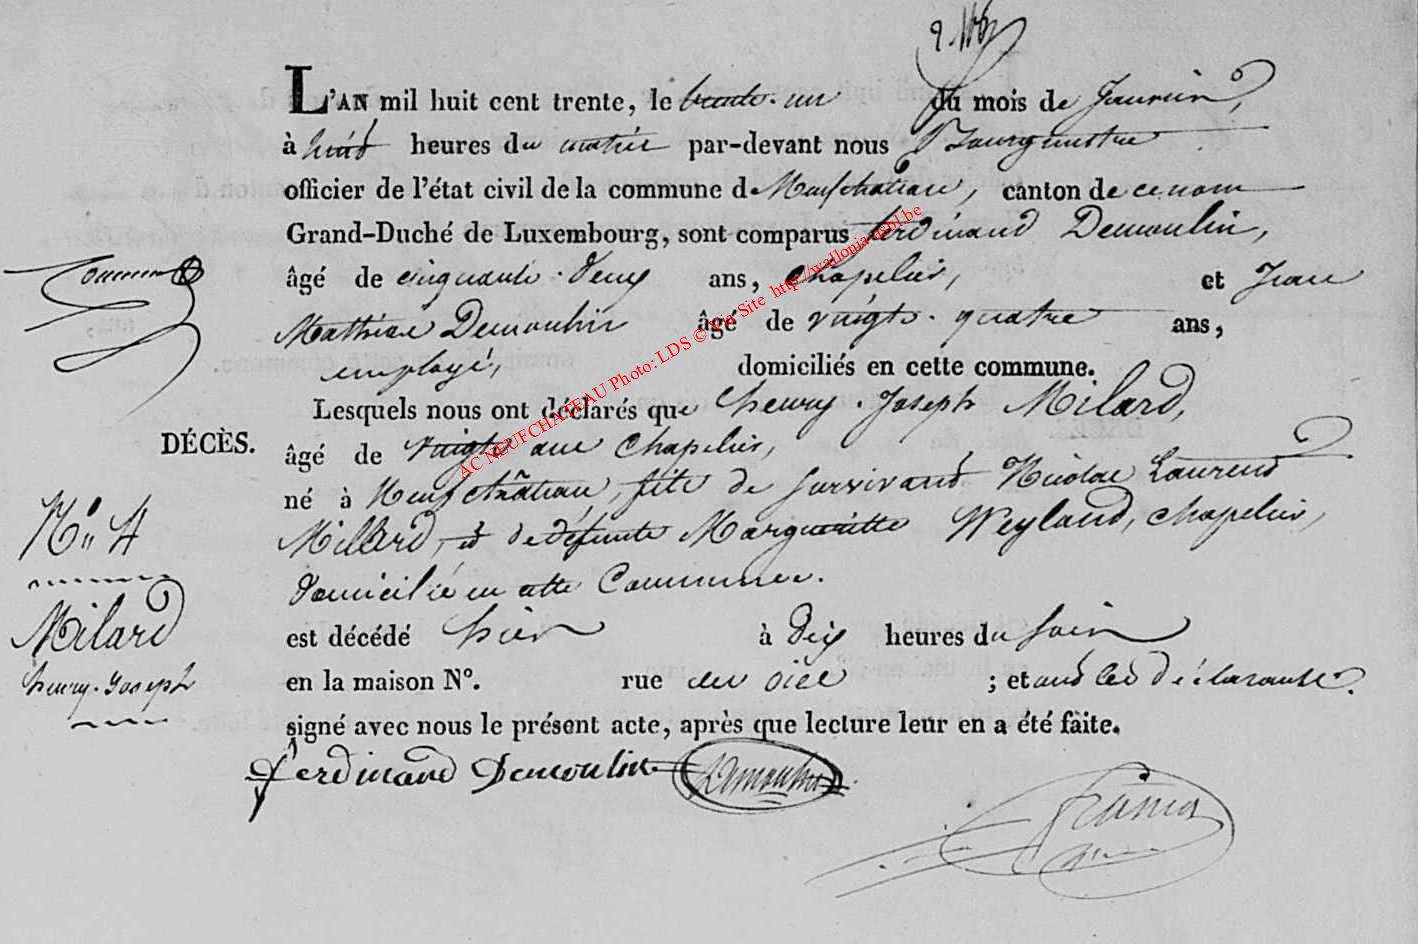 L'AN mil huit cent trente, le trente-un du mois de Janvier,
à huit heures du matin par-devant nous Bourguestre
officier de l'état civil de la commune de Neufchâteau, canton de ce nom
Grand-Duché de Luxembourg, sont comparus ferdinand Demoulin,
âgé de cinquante-deux ans, Chapelier, et Jean
Mathieu Demoulin âgé de vingt-quatre ans,
employé, domiciliés en cette commune.
Lesquels nous ont déclarés que henry-Joseph Milard,
DÉCÈS.
âgé de vingt ans Chapelier,
né à Neufchâteau, fils de survivant Nicolas Laurend
Millard, et de défunte Marguerite Weyland, chapelier,
domicilié en cette Commune.
est décédé hier à dix heures du soir
en la maison N°. rue ; et ont les déclarants
signé avec nous le présent acte, après que lecture leur en a été faite.
ferdinand Demoulin Demoulin
N° 4
Milard
henry-Joseph
AC NEUFCHATEAU Photo: LDS © Via Site http://wallonia-asbl.be